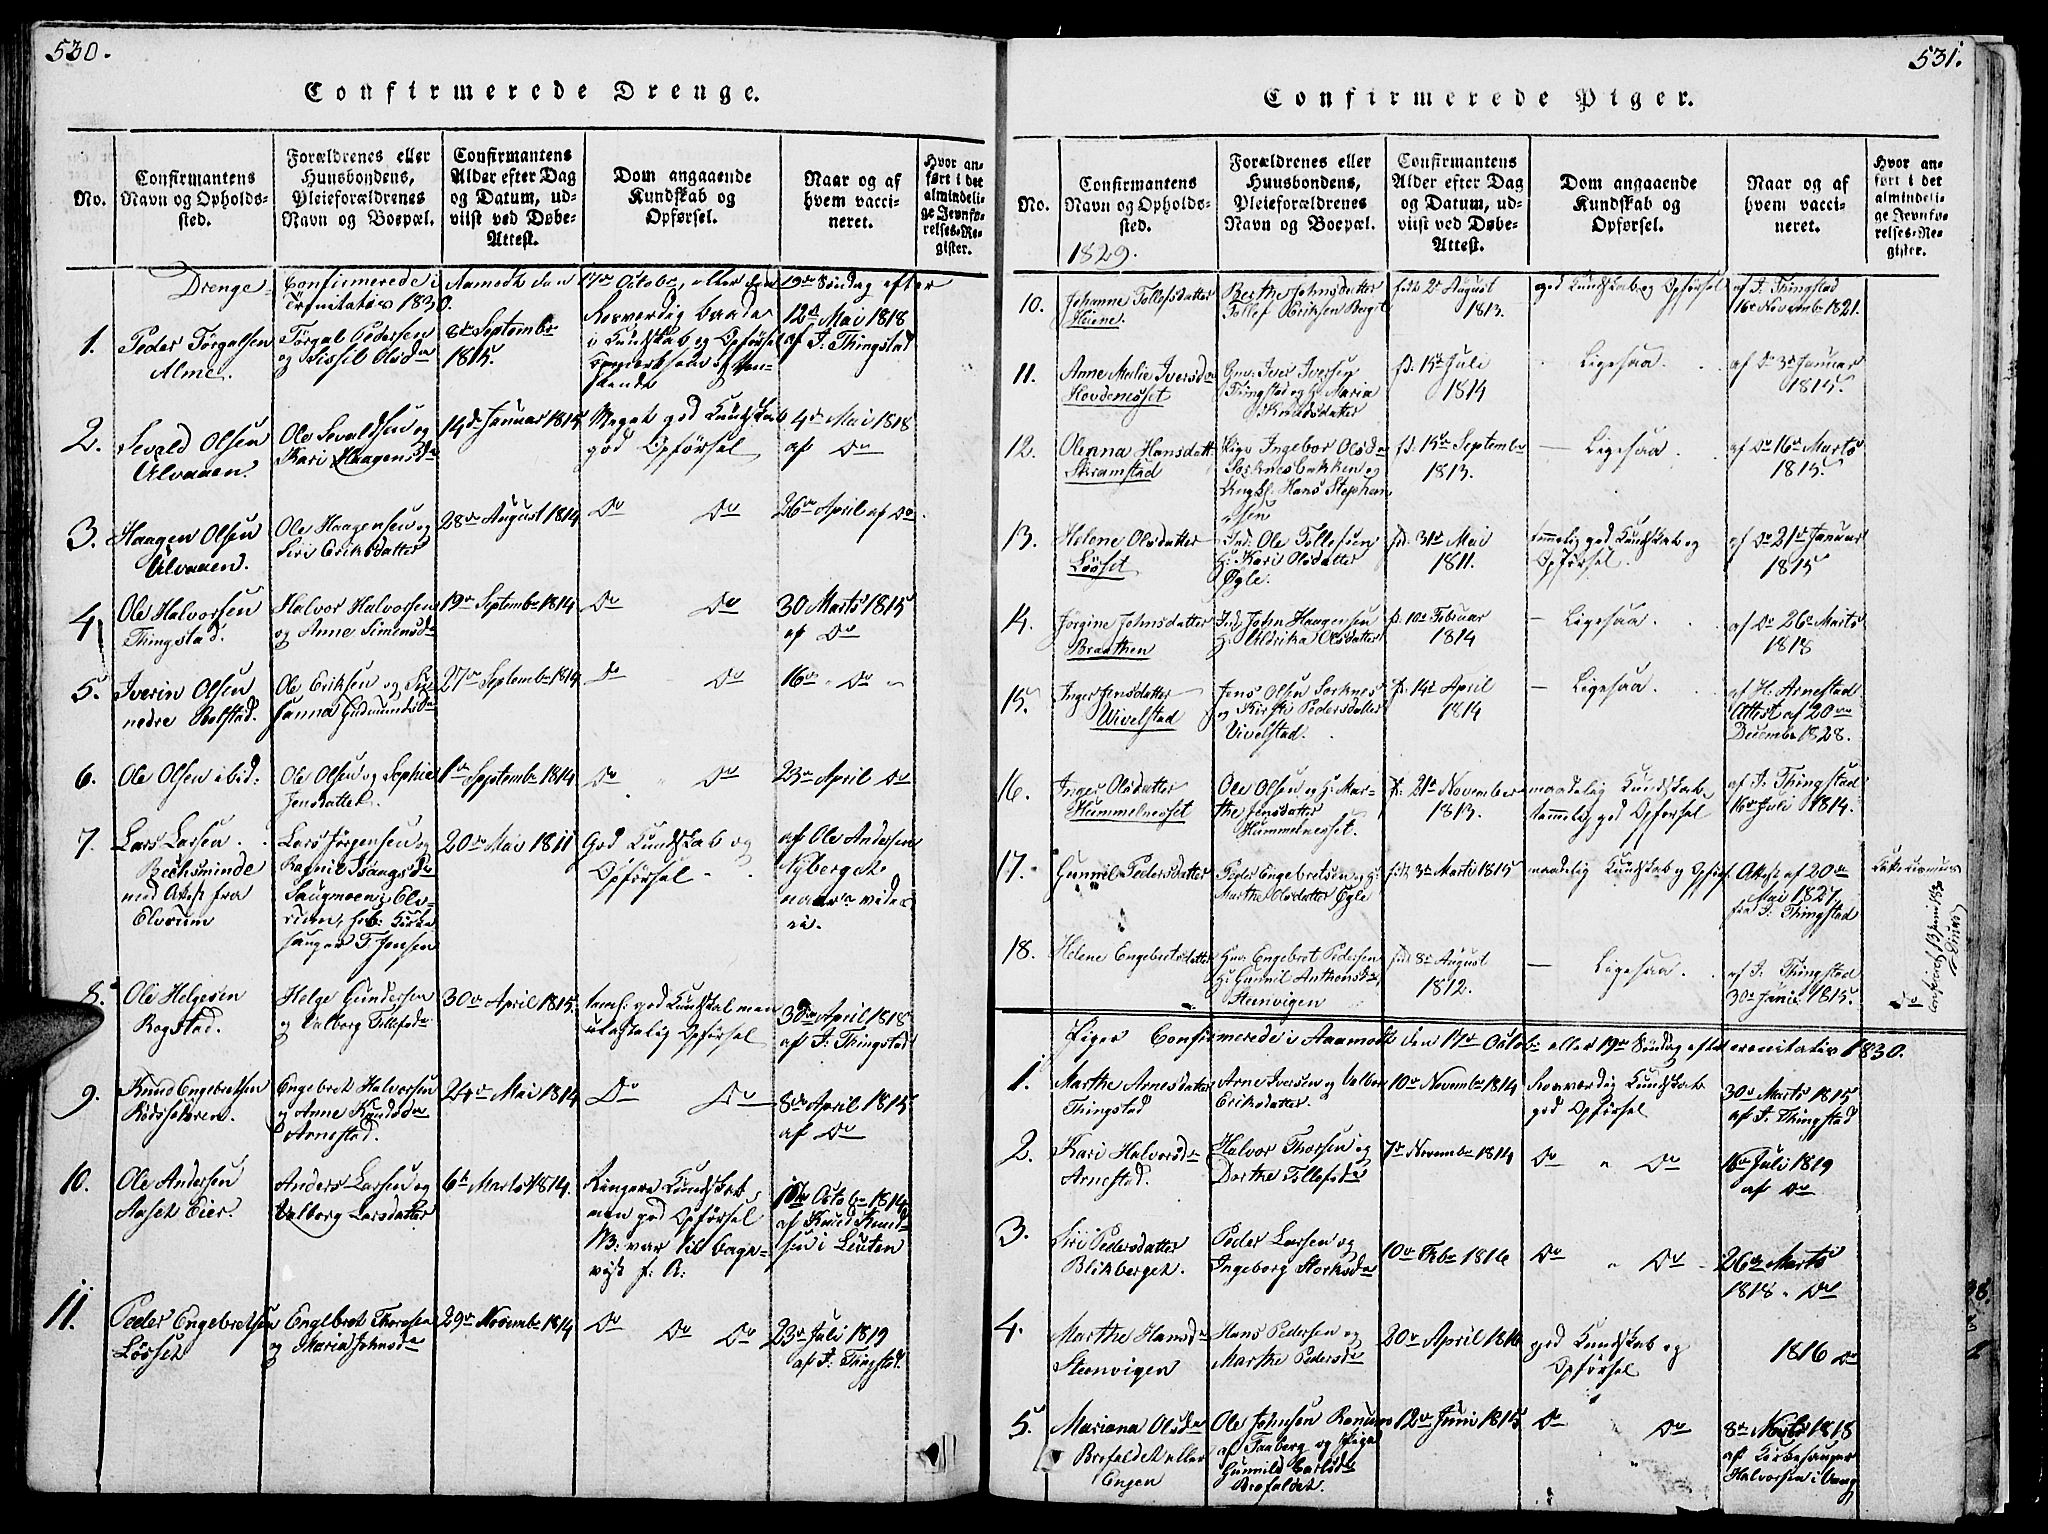 530.
Confirmerede Drenge.
No.
Confirmantens
Navn og Opholds-
sted.
Forældrenes eller
Huusbondens,
Pleieforældrenes
Navn og Boepæl.
Confirmantens
Alder efter Dag
og Datum, ud-
viist ved Døbe-
Attest.
Dom angaaende
Kundskab og
Opførsel.
Naar og af
hvem vacci-
neret.
Hvor an-
ført i det
almindeli-
ge Jevnfø-
relses-Re-
gister.
Drenge Confirmerede i Aamodt den 17de Octobr, eller den 19de Søndag efter
Trinitatis 1830.
1.
Peder Torgalsen
Alme.
Torgal Pedersen
og Sissel Olsdr
8de Septembr
1815.
Rosverdig baade
i Kundskab og Opførsel
12te Mai 1818
af J. Thingstad
2.
Sevald Olsen
Ulvaaen.
Ole Sevaldsen og
Kari Haagensdr
14de Januar 1815
Meget god Kundskab
god Opførsel
4de Mai 1818
af Do
3.
Haagen Olsen
Ulvaaen.
Ole Haagensen og
Siri Eriksdatter
28de August 1814
Do Do
26de April af Do
4.
Ole Halvorsen
Thingstad.
Halvor Halvorsen
og Anne Simensdr
19de Septembr 1814
Do Do
30 Marts 1815
af Do
5.
Iverin Olsen
nedre Rolstad.
Ole Eriksen og Su-
sanna Gudmundsdr
27de Septembr 1814
Do Do
16de Do
6.
Ole Olsen ibid:
Ole Olsen og Sophie
Jensdatter.
1de Septembr 1814
Do Do
23de April Do
7.
Lars Larsen
Bechsminde
med Attest fra
Elverum
Lars Jørgensen og
Saugmoen i Elv-
rum, hos Kirke
sanger T. Jensen
20de Mai 1811
God Kundskab og
Opførsel
af Ole Andersen
Nyberget
8.
Ole Helgesen
Rogstad.
Helge Gundersen
og Valborg Tollefsdr
30de April 1815.
temel. god Kundskab men
ulastelig Opførsel
30de April 1818
af J. Thingstad
9.
Knud Engebretsen
Kidsæteren.
Engebret Halvorsen
og Anne Knudsdr
Arnestad.
24de Mai 1814
Do Do
8de April 1815
af Do
10.
Ole Andersen
Aaset Eier.
Anders Larsen og
Valborg Larsdatter
6te Marts 1814.
Ringere Kundskab
men god Opførsel
NB: var til bage-
viist f: A:
Octobr 1814
af Knud Knud-
sen i Leuten
11.
Peder Engebretsen
Løsset
Engebret Thoresen
og Maria Johnsdr
29de Novembr 1814
Do Do Do
23de Juli 1819
af J. Thingstad.
531.
Confirmerede Piger.
No.
Confirmantens
Navn og Opholds-
sted.
1829.
Forældrenes eller
Huusbondens,
Pleieforældrenes
Navn og Boepæl.
Confirmantens
Alder efter Dag
og Datum, ud-
viist ved Døbe-
Attest.
Dom angaaende
Kundskab og
Opførsel.
Naar og af
hvem vacci-
neret.
Hvor an-
ført i det
almindeli-
ge Jevnfø-
relses-Re-
gister.
10.
Johanne Tollefsdatter
Heiene.
Berthe Johnsdatter
Tollef Eriksen Berget
født 2de August
1813.
god Kundskab og Opførsel
af J. Thingstad
16de Novembr 1821.
11.
Anne Malie Iversdr
Hovdenesset
Gm: Iver Iversen
Thingstad og H: Maria
Knudsdatter
fd: 15de Juli
1814
— Ligesaa.
af Do 3de Januar
1815.
12.
Olenna Hansdatt
Skramstad
Pige Ingebor Olsdr
Sorknesbakken og
Ungkl. Hans Stephan
sen
fd. 15de Septembr
1813.
— Ligesaa.
af Do 16de Marts
1815.
13.
Helene Olsdatter
Løsset
Ind: Ole Tollefsen
H: Kari Olsdatter
Øgle.
fd. 31te Mai
1811.
temmelig god Kundskab og
Opførsel.
af Do 21de Januar
1815
14.
Jørgine Johnsdatter
Braathen
Ind. John Haagensen
H: Uldrika Olsdatter
f: 10de Februar
1814
— Ligesaa.
af Do 26de Marts
1818
15.
Inger Jensdatter
Wivelstad
Jens Olsen Sorknes
og Kirsti Pedersdatter
Vivelstad.
f: 14de April
1814
— Ligesaa.
af H. Arnestad
Attest af 20de
Decembr 1828.
16.
Inger Olsdatter
Hummelnesset
Ole Olsen og H: Mar-
the Jensdatter
Hummelnesset.
f: 21de November
1813.
maadelig Kundskab
temmelig god Opførsel
af J. Thingstad
Juli 1814.
17.
Gunnil Pedersdatter
Peder Engebretsen og H:
Marthe Olsdatter Øgle
født 3de Marts 1815
maadelig Kundskab og Opfør.
Attest af 20de
Mai 1827
fra J. Thingstad
18.
Helene Engebretsdatter
Gm: Engebret Pedersen
H: Gunnil Anthonsdr
Steenvigen
født 8de August
1812.
— Ligesaa.
af J. Thingstad
30te Junii 1815.
Do
Piger Confirmerede i Aamodt den 17de Octobr eller 19de Søndag efter Trinitatis 1830.
1.
Marthe Arnesdatter
Thingstad
Arne Iversen og Valborg
Eriksdatter.
10de Novembr 1814
Rosværdig Kundskab
god Opførsel
30te Marts 1815
af J. Thingstad
2.
Kari Halvorsdr
Arnestad.
Halvor Thorsen og
Dorthe Tollefsdr
7de Novembr 1814
Do Do
16de Juli 1819
af Do
3.
Siri Pedersdatter
Blikberget.
Peder Larsen og
Ingeborg Storksdr
10de Febr 1816
Do Do
26de Marts
1818. Do
4.
Marthe Hansdr
Steenvigen
Hans Pedersen og
Marthe Pedersdr
20de April 1816
god Kundskab og
Opførsel
1816 Do
5.
Mariana Olsdr
Brofaldet eller
Engen
Ole Johnsen Ronum
af Faaberg og Pige
Gunnild Carlsdr
Brofaldet.
12te Juni 1815
Do Do
8de 1818
af Kirkesanger
Halvorsen i Vang